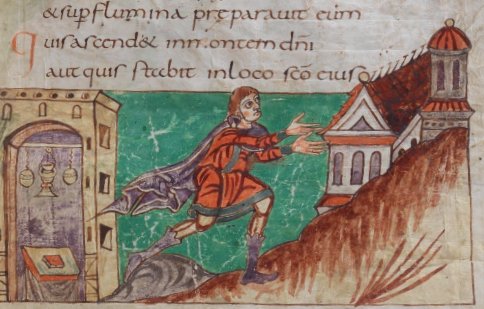 & sup flumina pręparauit eum
Quis ascend& in montem dni
aut quis stabit in loco sco eius